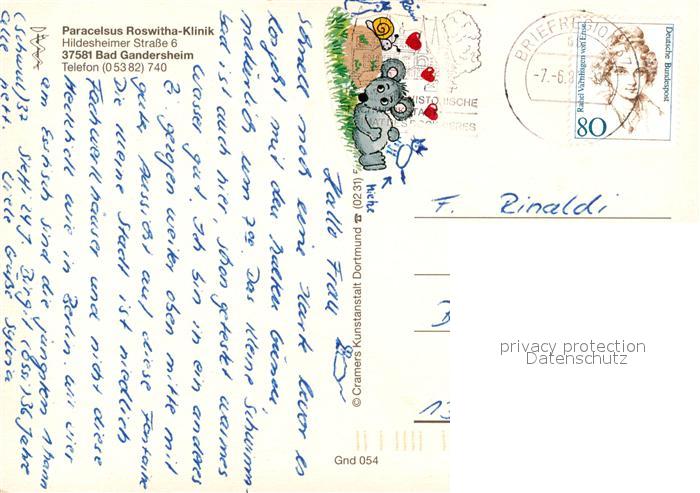 Paracelsus Roswitha-Klinik
Hildesheimer Straße 6
37581 Bad Gandersheim
Telefon (0 53 82) 740
Hallo Frau
schnell noch eine Karte bevor es
losgeht mit den
natürlich um 7 00. Das kleine Schwimm-
bad is auch hier, schon getestet warmes
Wasser gut. Ich bin in ein anderes
Zi gegen weiter oben mitte mit
gute Aussicht auf diese Fontaine
Die kleine Stadt ist niedlich
Fachwerkhäuser und nicht diese
Hektik wie in Berlin. Wir vier
am Esstisch sind die jüngsten 1 Mann
alle nett. Liebe Grüße Sylvia
hiehe
© Cramers Kunstanstalt Dortmund ☎ (02 31)
Gnd 054
BRIEFREGION 37
-7.-6.9
HISTORISCHE
Deutsche Bundespost
Rahel Varnhagen von Ense
80
F. Rinaldi
B
13
privacy protection
Datenschutz